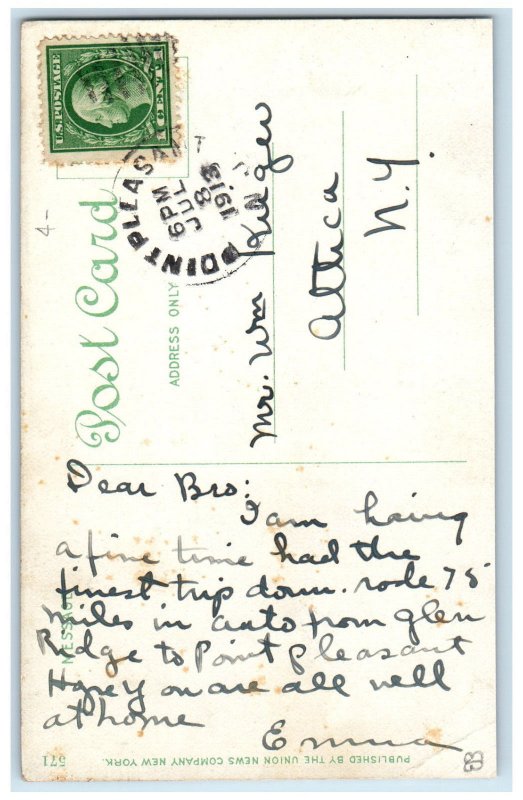 U.S. POSTAGE
1 CENT 1
POINT PLEASANT
JUL 8
6 PM
1913
N.J.
4-
Post Card
ADDRESS ONLY
Mr. Wm Kruger
Attica
N.Y.
MESSAGE
Dear Bro:
I am having
a fine time had the
finest trip down. rode 75
miles in auto from Glen
Ridge to Point Pleasant
Hope you are all well
at home
Emma
571
PUBLISHED BY THE UNION NEWS COMPANY NEW YORK.